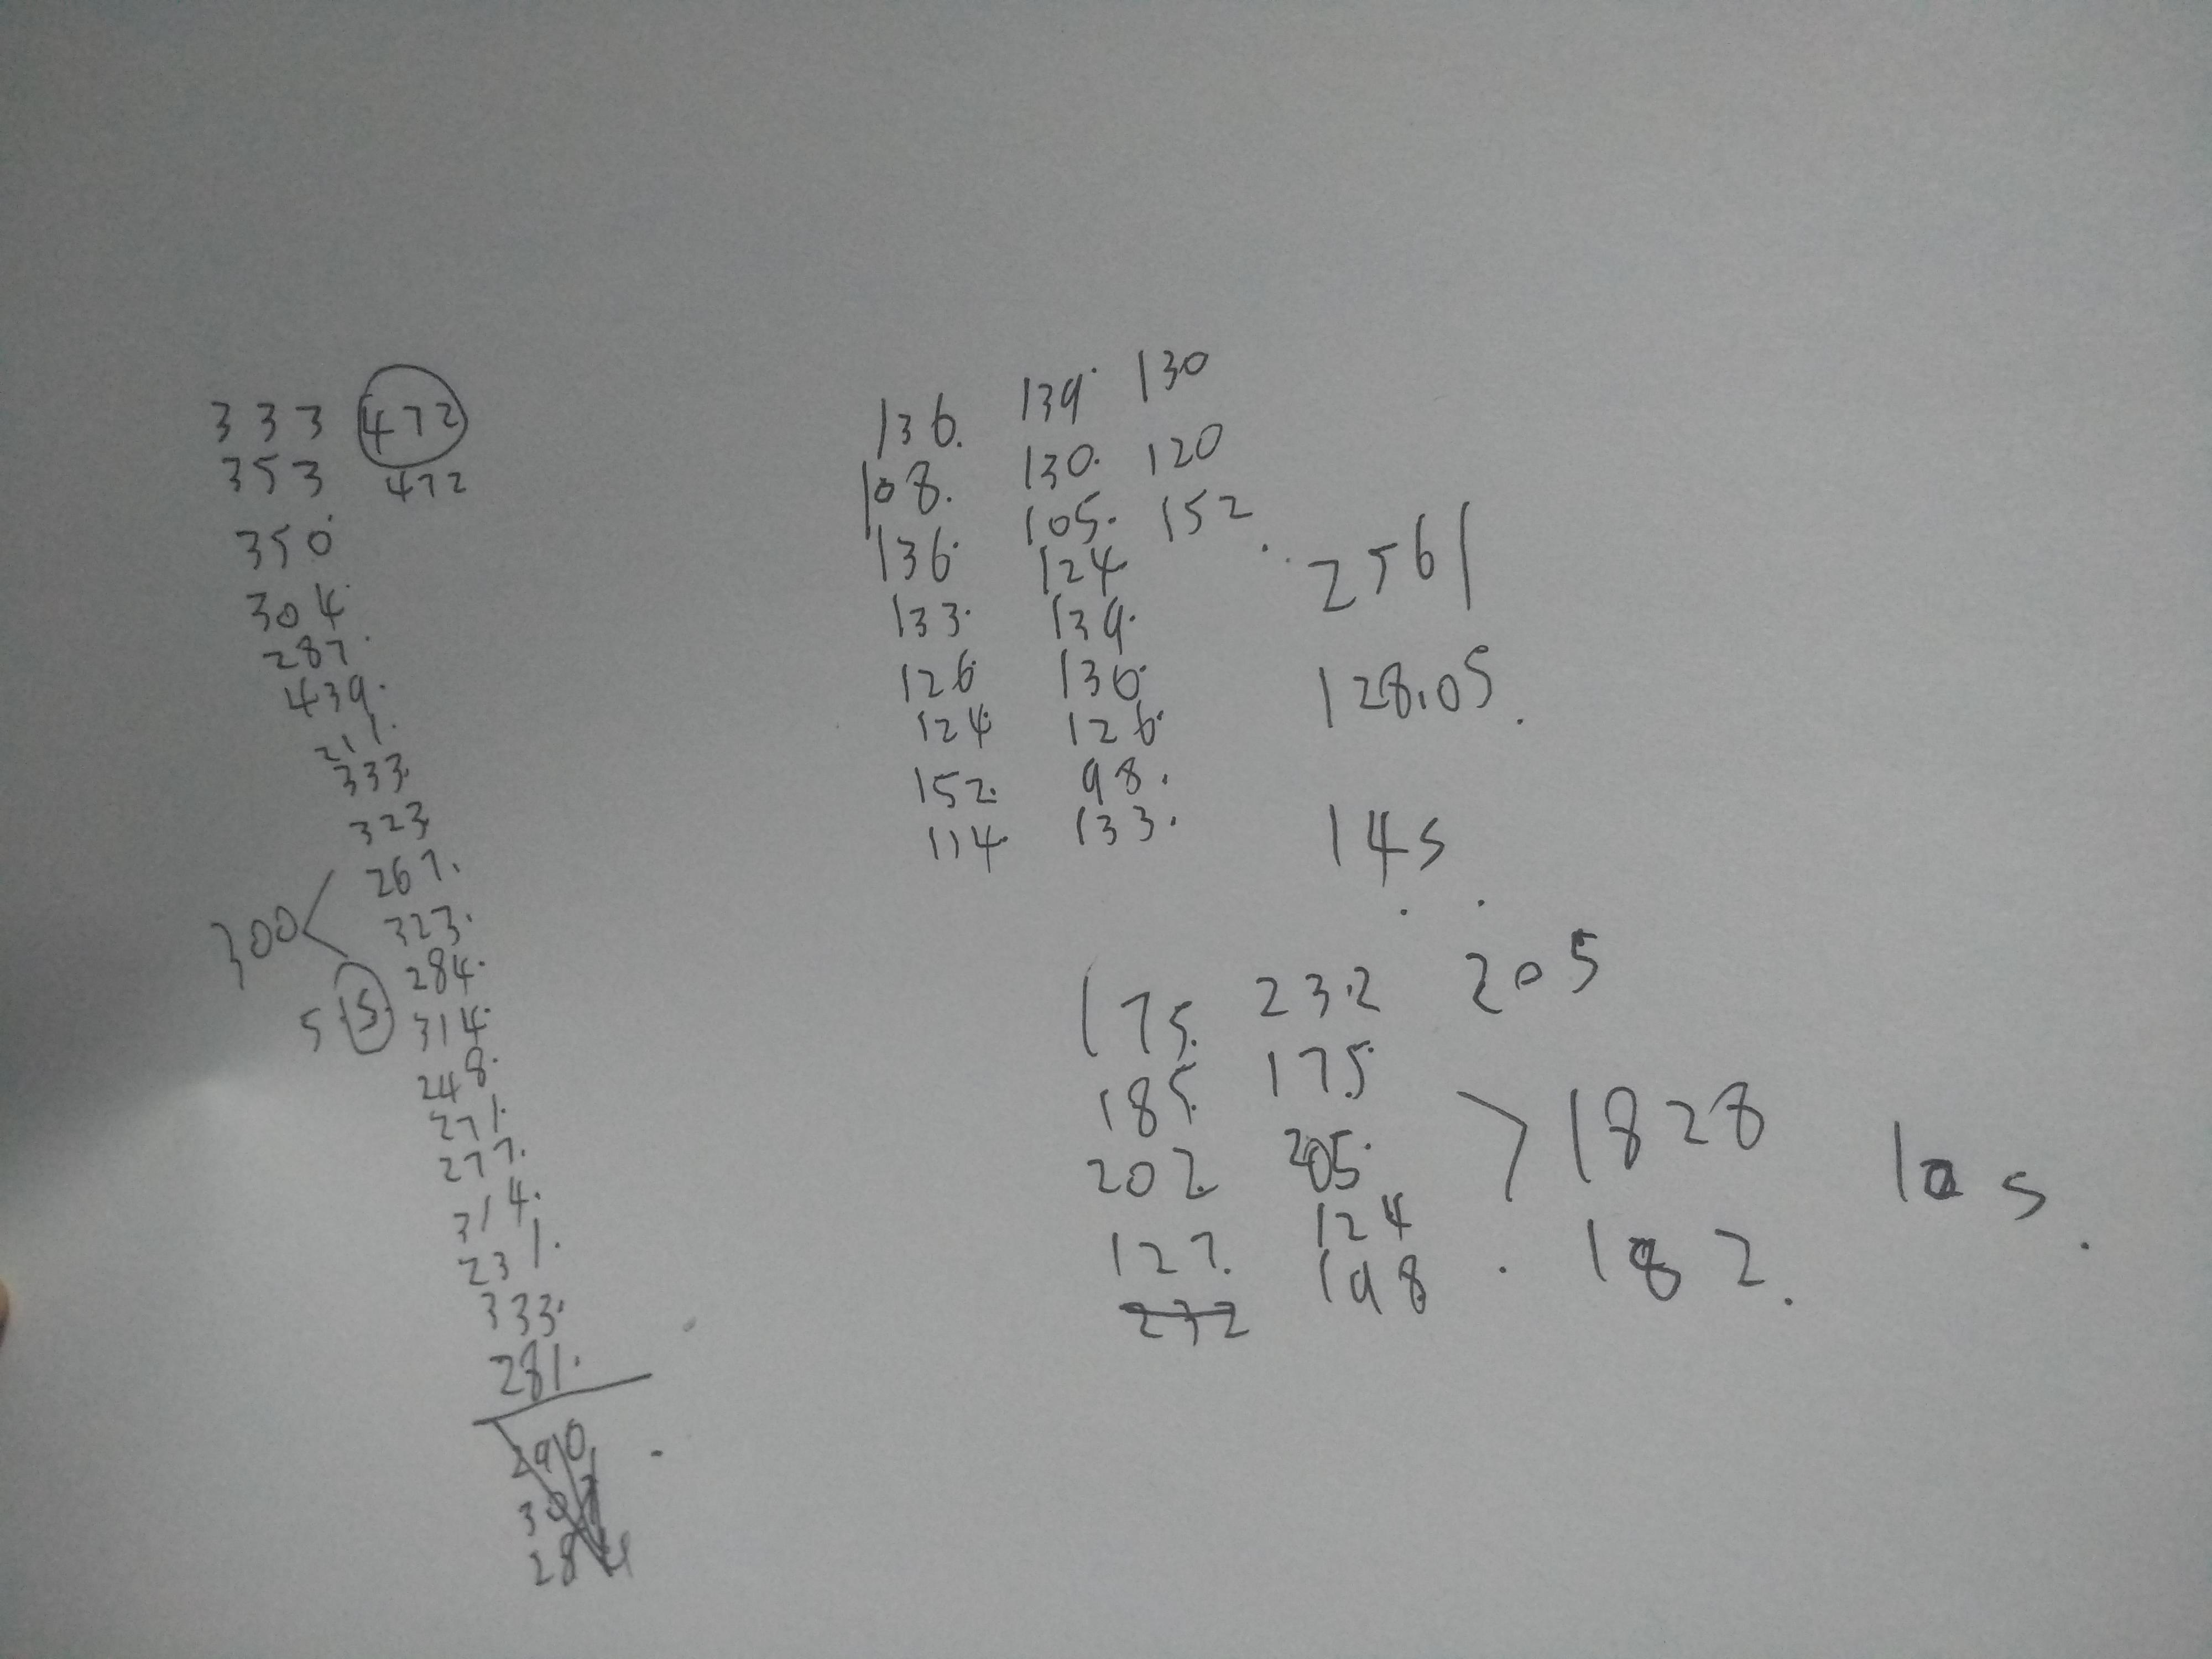 333 472
353 472
350
304
287
439
211
333
323
267
300
323
284
5 15
314
248
271
277
314
231
333
281
290
284
136. 139 130
108. 130. 120
136 105. 152
133. 124
126 139.
124 136
152. 126
114 98.
133.
2561
128.05
14s
175 232 205
185 175
202 205
127 124
232 198
1828
182
10 s